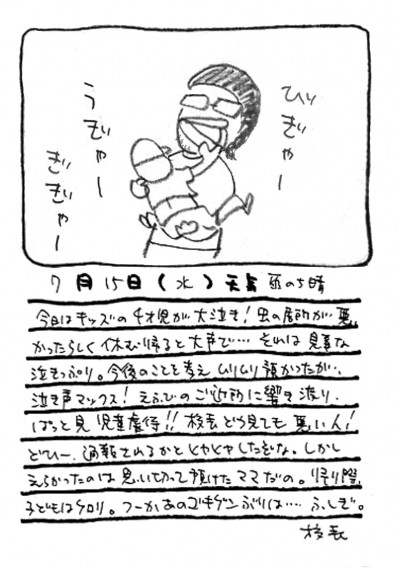 ひぃぎゃー
うぎゃー
ぎぎゃー
7月15日(水)天気 雨のち晴
今日はキッズの4才児が大泣き!虫の居所が悪
かったらしく休む帰ると大声で…それは見事な
泣きっぷり。今後のことを考えムリムリ預かったが、
泣き声マックス!えふびのご近所に響き渡り、
ぱっと見児童虐待!!校長どう見ても悪い人!
どひー、通報されるかとヒヤヒヤしたぞな。しかし
えらかったのは思い切って預けたママだの。帰り際、
子どもはケロリ。つーかあのゴキゲンぶりは…ふしぎ。
校長